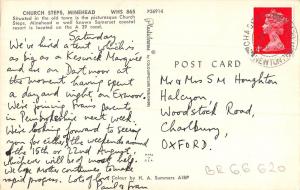 CHURCH STEPS, MINEHEAD WHS 865
Situated in the old town is the picturesque Church
Steps, Minehead a well known Somerset coastal
resort is located on the A 39 road.
P36914
Saturday
We've hired a tent which is
as big as a Keswick Marquee
and are on Dartmoor at
the moment having spent
a day and night on Exmoor.
We're joining Fran's parents in
Pembrokeshire next week.
We're looking forward to seeing
you for either of the weekends around
the 15th or 22nd August,
whichever will be most helpful.
We hope mother continues to make
rapid progress. Lots of love
Paul & Fran
Colour by H. A. Summers AIBP
POST CARD
Mr & Mrs S M Houghton
Halcyon
Woodstock Road,
Charlbury,
OXFORD.
BR66 620
NEWTON